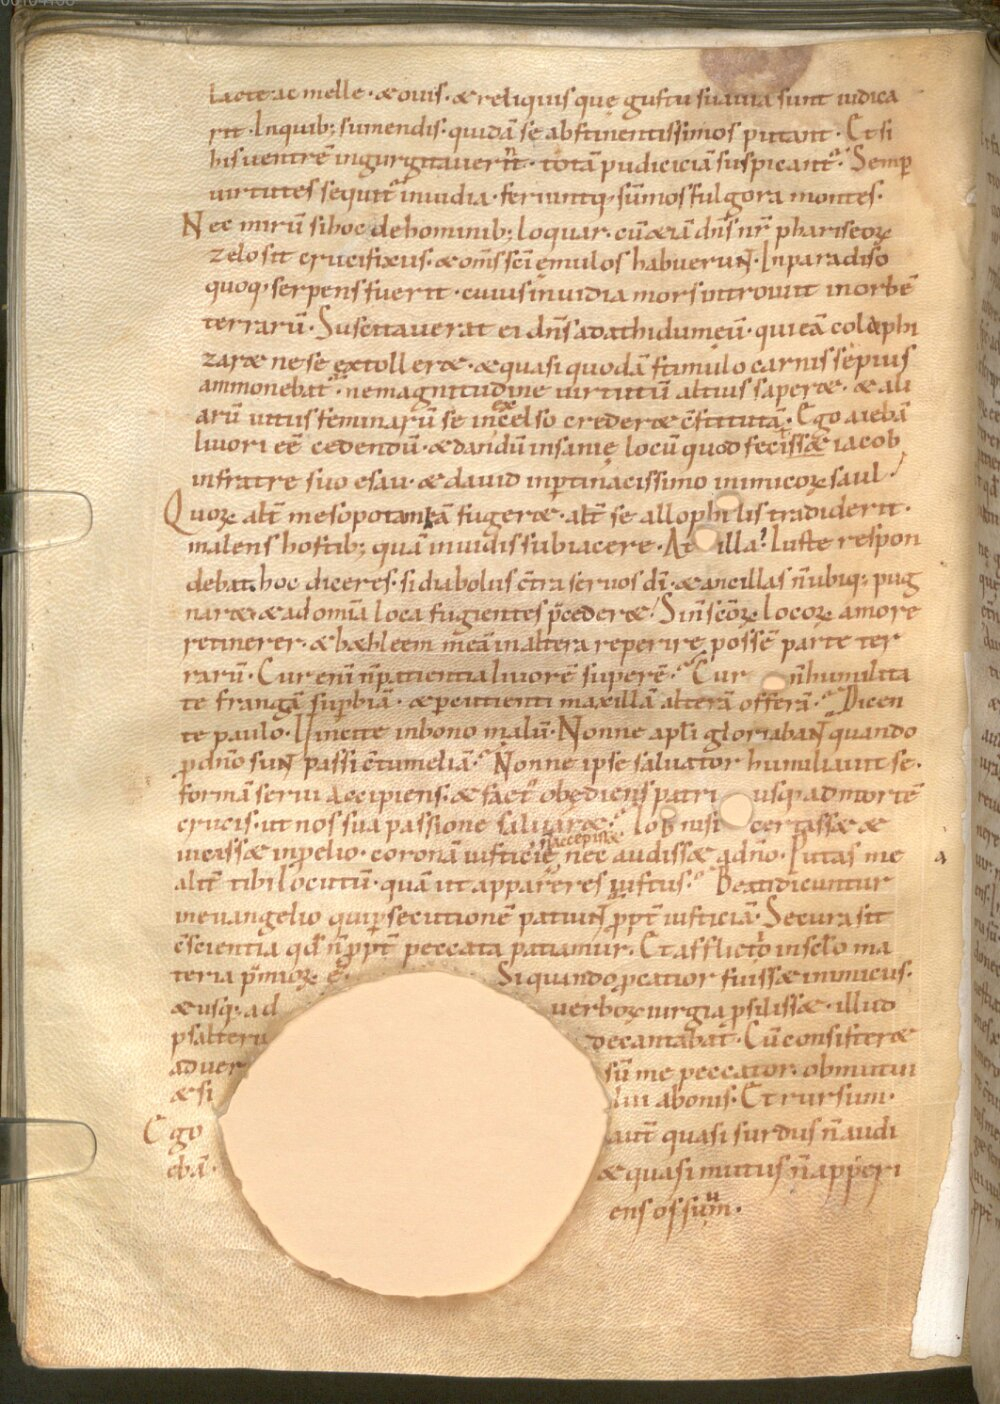 Lacte ac melle · & ouis · & reliquis que gustu suauia sunt iudica
rit · Inquib; sumendis · quidā se abstinentissimos putant · Et si
his uentrē ingurgitauerīt · totā pudiciciā suspicant᷑ · Semp̄
uirtutes sequit᷑ inuidia · feriuntq; sūmos fulgora montes ·
Nec mirū si hoc de hominib; loquar · cū & iā dn̄s nr̄ phariseoꝝ
zelo sit crucifixus · & om̄s sc̄i ęmulos habuerunt · In paradiso
quoq; serpens fuerit · cuius inuidia mors introiuit in orbē
terrarū · Suscitauerat ei dn̄s adath idumęū · qui eā colaphi
zar& ne se extoller& · & quasi quodā stimulo carnis sępius
ammonebat᷑ · ne magnitudine uirtutū altius saper& · & ali
arū uitus feminarū se in excelso creder& c̄stitutā · Ego aiebā
liuori eē cedendū · & dandū insanię locū quod feciss& iacob
in fratre suo esau · & dauid in p̄tinacissimo inimicoꝝ saul /
Quoꝝ alt̄ mesopotamiā fuger& · alt̄ se allophilis tradiderit ·
malens hostib; quā inuidis subiacere · At illa · Iuste respon
debat · hoc diceres · si diabolus c̄tra seruos dī · & ancillas n̄ ubiq; pug
nar& · & ad om̄ia loca fugientes p̄ceder& / Si n̄ sc̄oꝝ locoꝝ amore
retinerer · & b&hleem meā in altera reperire possē parte ter
rarū · Cur enī n̄ patientia liuorē superē · Cur n̄ humilita
te frangā sup̄biā · & p̄cutienti maxillā alterā offerā · Dicen
te paulo · Vincite in bono malū · Nonne apl̄i gloriabant quando
p̄ dn̄o sunt passi c̄tumeliā · Nonne ipse saluator humiliauit se ·
formā serui accipiens · & fact᷑ obędiens patri usq; ad mortē
crucis · ut nos sua passione saluar& · Iob nisi certass& &
uicass& in p̄elio · coronā iusticię n accepiss& nec audiss& a dn̄o · Putas me
alit̄ tibi locutū · quā ut appareres iustus · Beati dicuntur
in euangelio qui p̄secutionē patiunt p̄pt̄ iusticiā · Secura sit
c̄scientia qd̄ n̄ p̄pt̄ peccata patiamur · Et afflictio in sc̄lo ma
teria p̄mioꝝ ē · Si quando p̄catior fuiss& inimicus ·
& usq; ad uerboꝝ iurgia p̄siliss& · illud
psalterii decantabat · Cū consister&
aduer sū me peccator · obmutui
& si lui a bonis · Et rursum ·
Ego aut̄ quasi surdus n̄ audi
ebā · & quasi mutus n̄ apperi
ens os suum ·